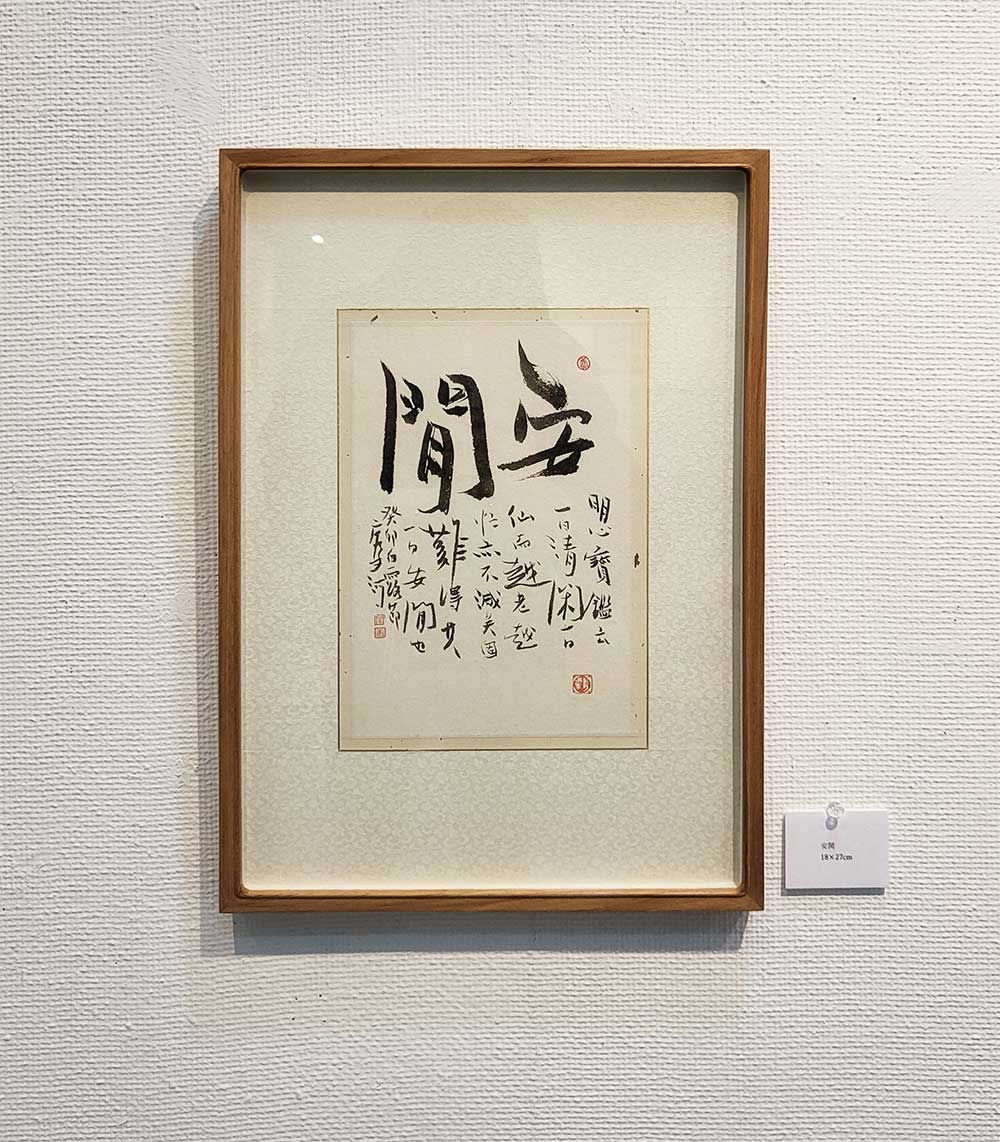 安閒
明心寶鑑云
一日清閑一日
仙而越老越
忙亦不減矣固
難得其
一日安閒也
癸卯白露節
安閒
18×27cm